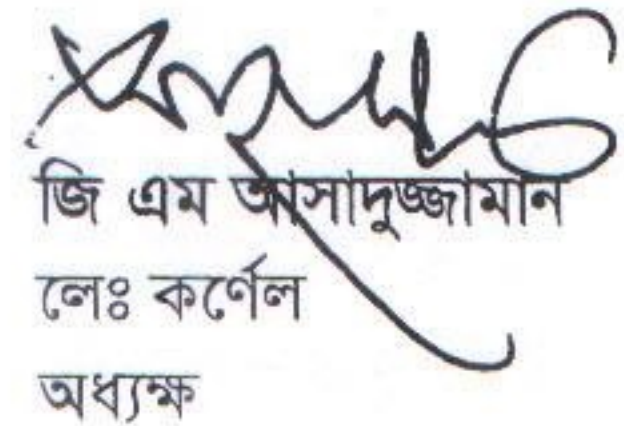 জি এম আসাদুজ্জামান
লেঃ কর্ণেল
অধ্যক্ষ